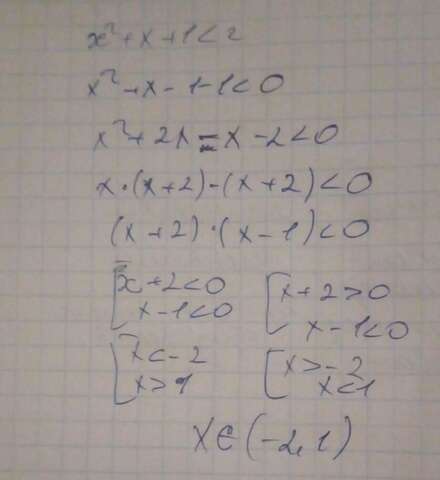 x²+x+1<2
x²+x-1-1<0
x²+2x=x-2<0
x·(x+2)-(x+2)<0
(x+2)·(x-1)<0
[x+2<0 [x+2>0
x-1<0 x-1<0
[x<-2 [x>-2
x>1 x<1
x∈(-2,1)